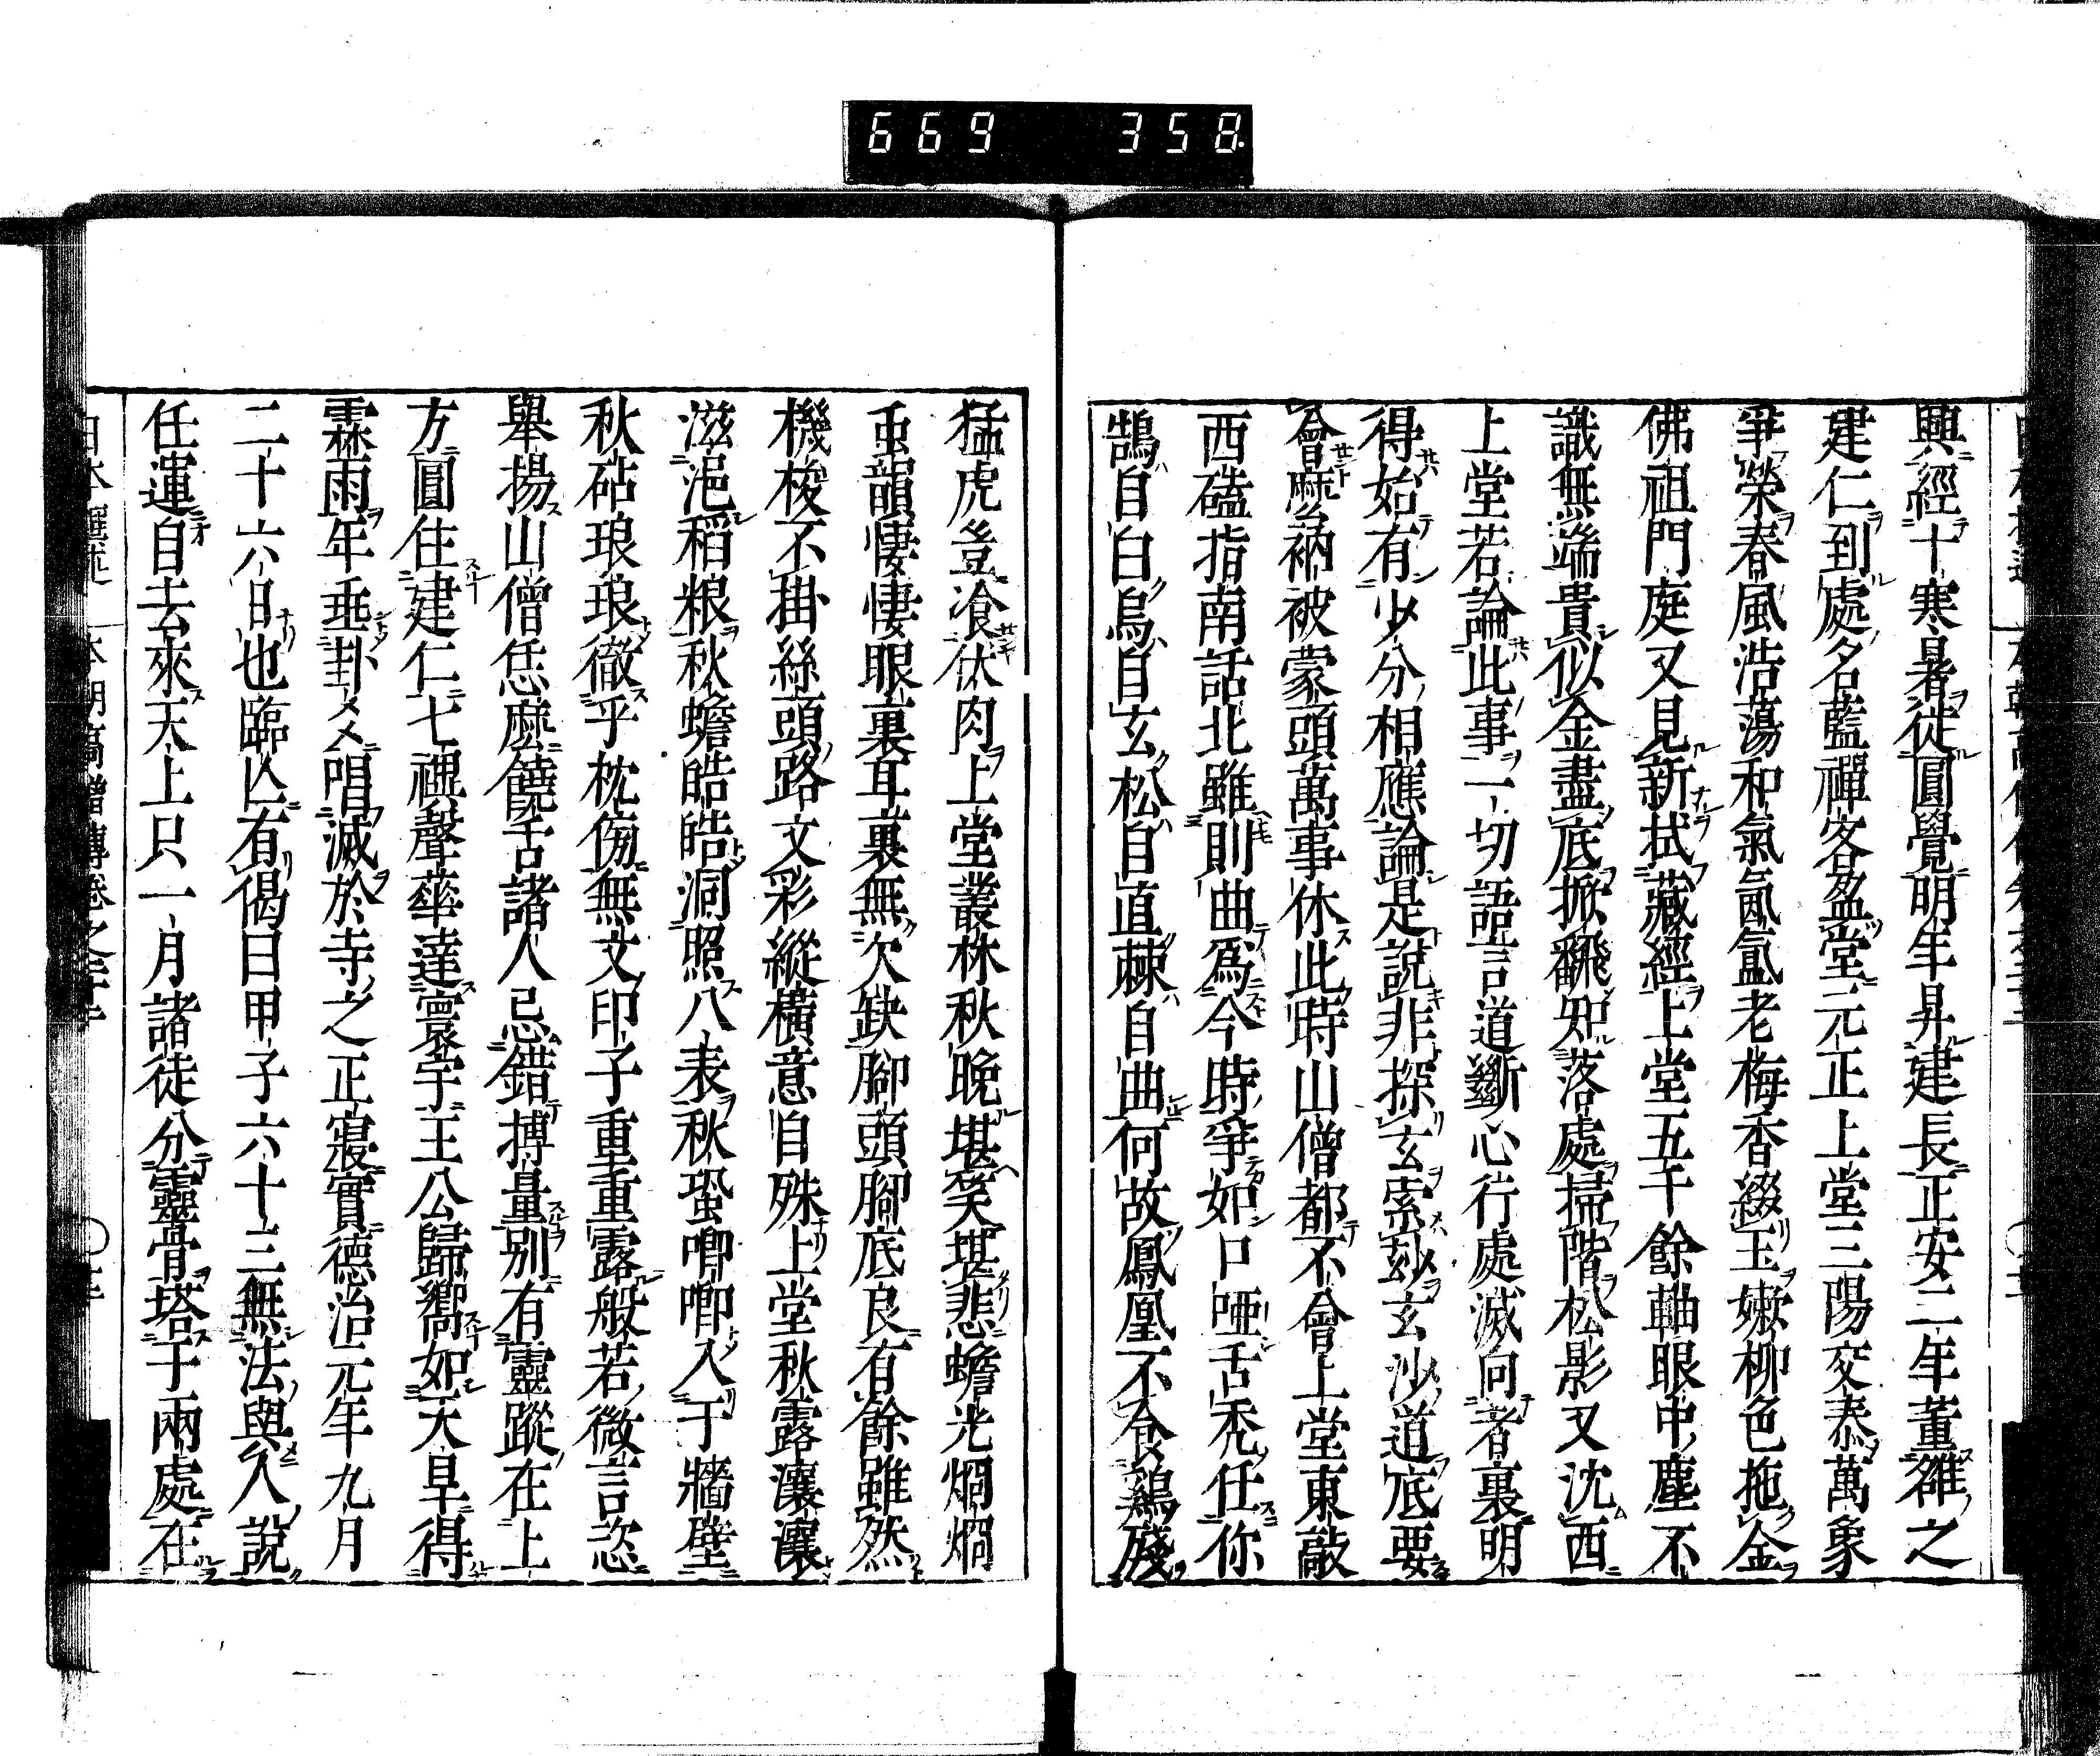 669 358
興經十寒暑從圓覺明年昇建長正安二年董雒之
建仁到處名藍禪客盈堂元正上堂三陽交泰萬象
爭榮春風浩蕩和氣氤氳老梅香綴玉嫩柳色拖金
佛祖門庭又見新拭藏經上堂五千餘軸眼中塵不
識無端貴似金盡底掀飜知落處掃階松影又沈西
上堂若論此事一切語言道斷心行處滅向者裏明
得始有少分相應論是說非探玄索玅玄沙道底要
會麼衲被蒙頭萬事休此時山僧都不會上堂東敲
西磕指南話北雖則曲爲今時爭如口啞舌禿任你
鵠自白烏自玄松自直棘自曲何故鳳凰不食鷄殘
猛虎豈飡伏肉上堂叢林秋晚堪笑堪悲蟾光烱烱
虫韻悽悽眼裏耳裏無欠缺腳頭腳底良有餘雖然
機梭不掛絲頭路文彩縱橫意自殊上堂秋露瀼瀼
滋浥稻粮秋蟾皓皓洞照八表秋蛩唧唧入于牆壁
秋砧琅琅徹乎枕傍無文印子重重露般若微言恣
舉揚山僧恁麼饒舌諸人忌錯摶量別有靈蹤在上
方圓住建仁七禩聲華達寰宇王公歸嚮如大旱得
霖雨年垂卦爻唱滅於寺之正寢實德治元年九月
二十六日也臨亾有偈曰甲子六十三無法與人說
任運自去來天上只一月諸徒分靈骨塔于兩處在